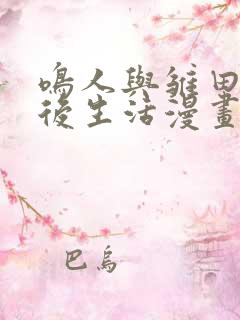 鳴人與雛田
後生活漫畫
巴烏